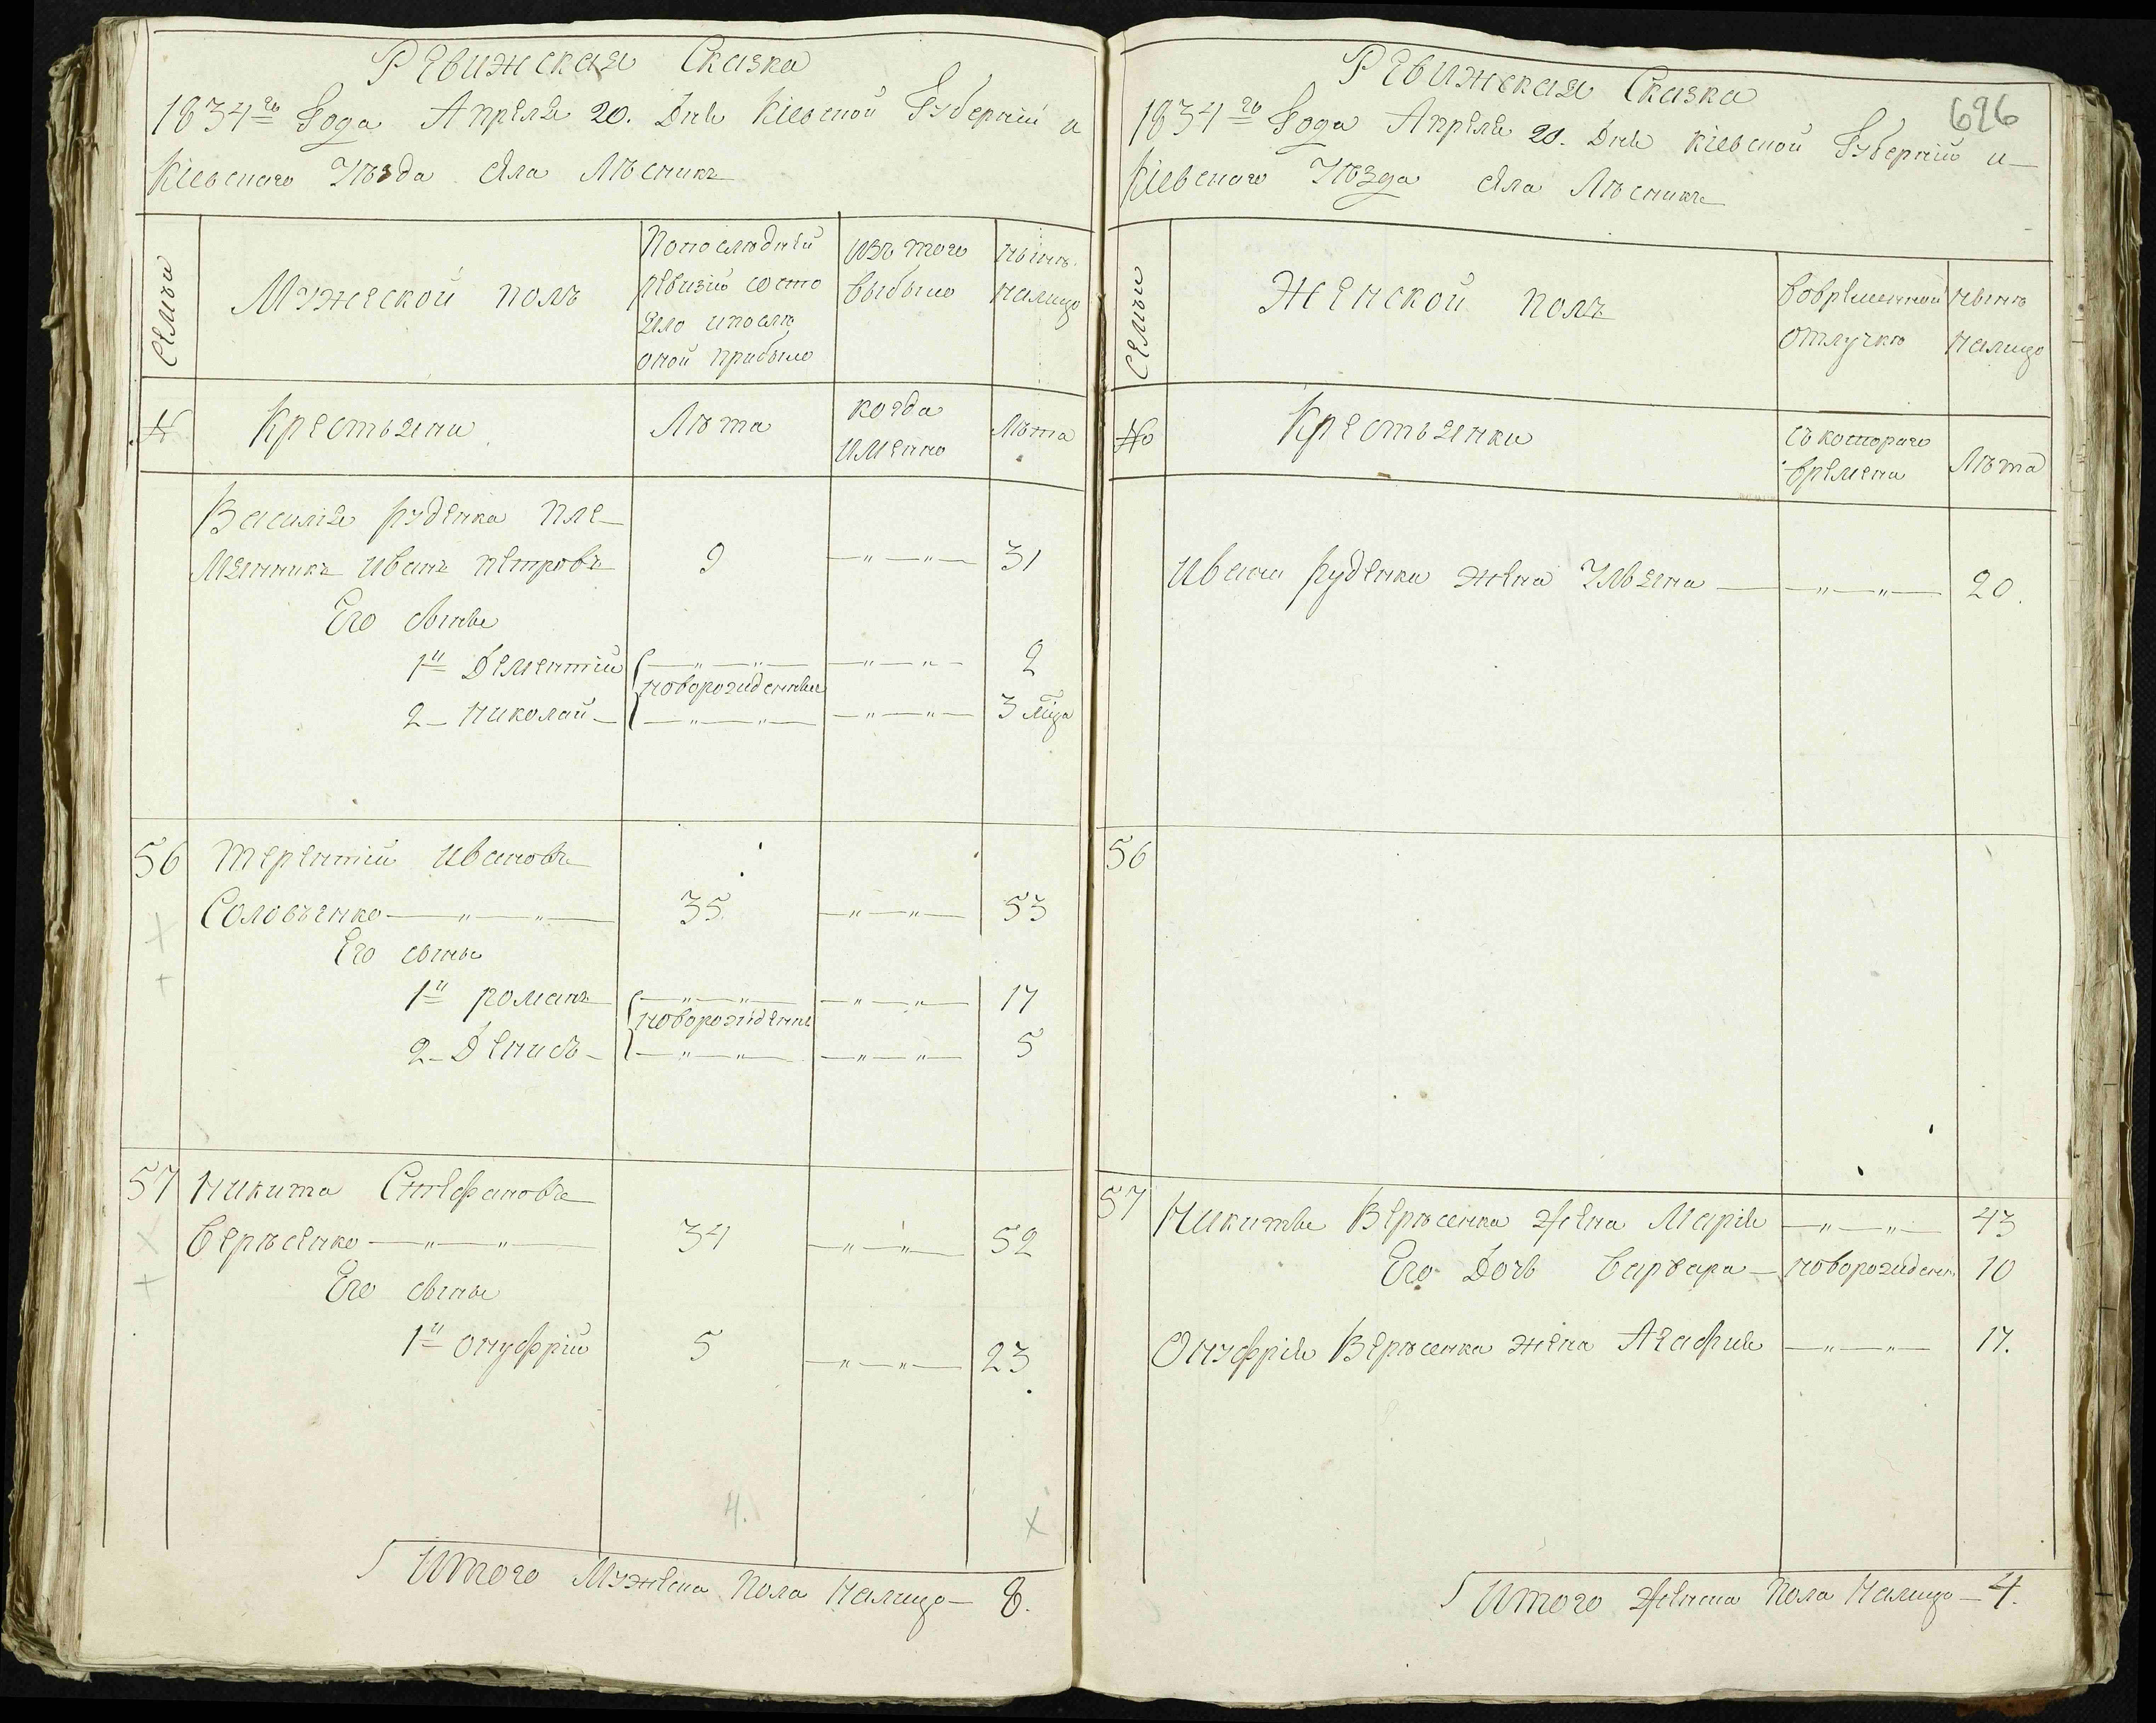 Ревижская Сказка
1834го Года Апреля 20. Дня Кіевской Губерніи и
Кіевскаго Уѣзда села Лѣсникъ
Семьи
Мужеской полъ
Попослѣдней
ревизіи состо
яло и послѣ
оной прибыло
изъ того
выбыло
нынѣ
налицо
№
Крестьяни
Лѣта
когда
именно
Лѣта
Василія Руденка пле
мянникъ Иванъ Петровъ 9 31
Его сынъе
1й Дементій 2
новорожденные
2 Николай 3 мца
56 Терентій Ивановъ
Соловьенко 35 53
Его сынье
1й Романъ 17
новорожденные
2 Денисъ 5
57 Никита Стефановъ
Верѣсенко 34 52
Его сынье
1й Онуфрій 5 23
4.
Итого Мужеска Пола Налицо 8.
626
Ревижская Сказка
1834го Года Апреля 20. Дня Кіевской Губерніи и
Кіевскаго Уѣзда села Лѣсникъ
Семьи
Женской полъ
Вовременной
отлучкѣ
нынѣ
налицо
№
Крестьянки
съ котораго
времени
Лѣта
Ивана Руденка жена Ульяна 20.
56
57 Никиты Верѣсенка жена Марія 43
Его Дочь Варвара новорожден. 10
Онуфрія Верѣсенка жена Агафия 17.
Итого Женска Пола Налицо 4.